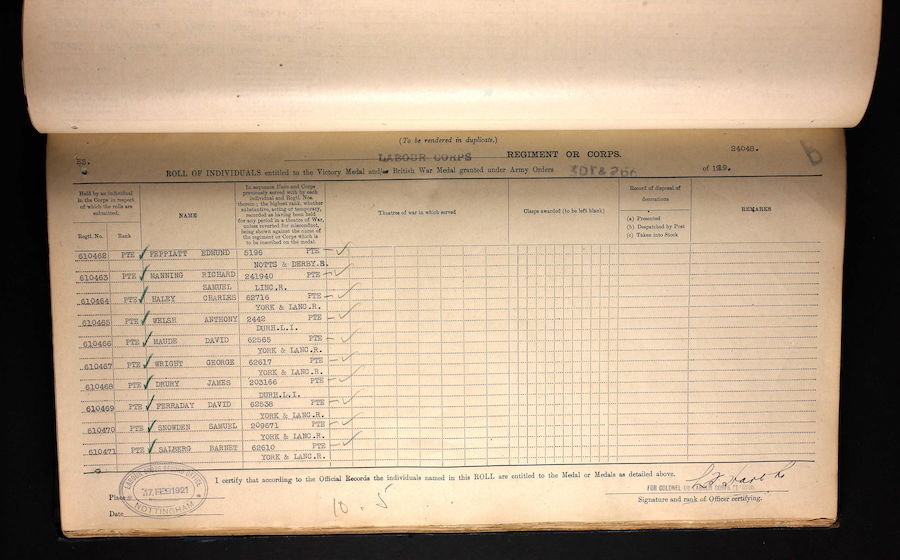 (To be rendered in duplicate.)
LABOUR CORPS REGIMENT OR CORPS. 24048.
ES.
ROLL OF INDIVIDUALS entitled to the Victory Medal and/or British War Medal granted under Army Orders 301 & 266 of 1919.
Held by an individual in the Corps in respect of which the rolls are submitted.
Regtl. No. Rank
NAME
In sequence Units and Corps previously served with by each individual and Regtl. Nos. therein; the highest rank, whether substantive, acting or temporary, recorded as having been held for any period in a theatre of War, unless reverted for misconduct, being shown against the name of the regiment or Corps which is to be inscribed on the medal.
Theatres of war in which served
Clasps awarded (to be left blank)
Record of disposal of decorations
(a) Presented
(b) Despatched by Post
(c) Taken into Stock
REMARKS
610462 PTE PEPPIATT EDMUND 5196 PTE
NOTTS & DERBY.R.
610463 PTE MANNING RICHARD 241940 PTE
SAMUEL LINC.R.
610464 PTE HALEY CHARLES 62716 PTE
YORK & LANC.R.
610465 PTE WELSH ANTHONY 2442 PTE
DURH.L.I.
610466 PTE MAUDE DAVID 62565 PTE
YORK & LANC.R.
610467 PTE WRIGHT GEORGE 62617 PTE
YORK & LANC.R.
610468 PTE DRURY JAMES 203166 PTE
DURH.L.I.
610469 PTE FERRADAY DAVID 62538 PTE
YORK & LANC.R.
610470 PTE SNOWDEN SAMUEL 209671 PTE
YORK & LANC.R.
610471 PTE SALBERG BARNET 62610 PTE
YORK & LANC.R.
I certify that according to the Official Records the individuals named in this ROLL are entitled to the Medal or Medals as detailed above.
LABOUR CORPS OFFICE
17 FEB 1921
NOTTINGHAM
Place
Date
10.5
FOR COLONEL I/C LABOUR CORPS
Signature and rank of Officer certifying.